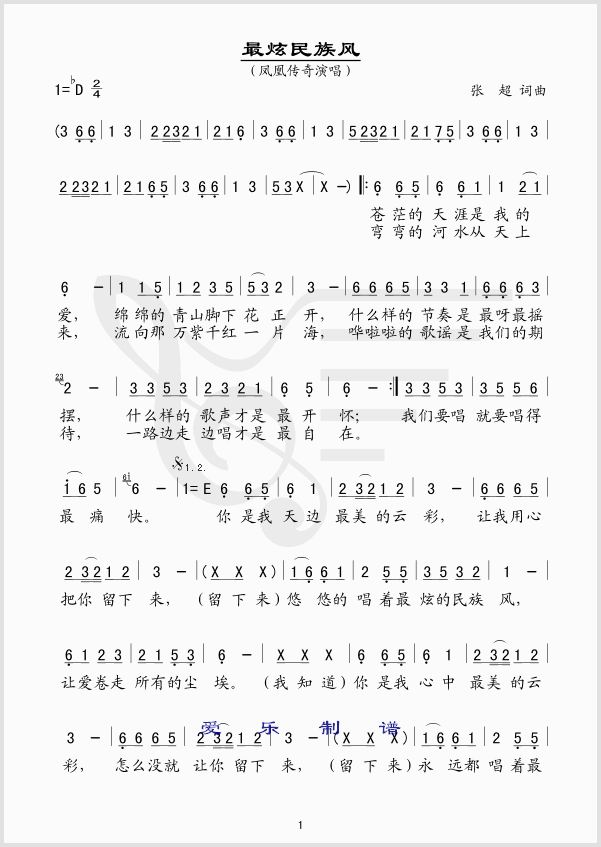 最炫民族风
（凤凰传奇演唱）
1=♭D 2/4 张 超 词曲
(3 6 6 | 1 3 | 2 2 3 2 1 | 2 1 6 | 3 6 6 | 1 3 | 5 2 3 2 1 | 2 1 7 5 | 3 6 6 | 1 3 |
2 2 3 2 1 | 2 1 6 5 | 3 6 6 | 1 3 | 5 3 X | X -) ‖: 6 6 5 | 6 6 1 | 1 2 1 |
苍 茫的 天 涯是 我 的
弯 弯的 河 水从 天 上
6 - | 1 1 5 | 1 2 3 5 | 5 3 2 | 3 - | 6 6 6 5 | 3 3 1 | 6 6 6 3 |
爱， 绵绵的 青山脚下 花 正 开， 什么样的 节奏是 最呀最摇
来， 流向那 万紫千红 一 片 海， 哗啦啦的 歌谣是 我们的期
23 2 - | 3 3 5 3 | 2 3 2 1 | 6 5 | 6 - :‖ 3 3 5 3 | 3 5 5 6 |
摆， 什么样的 歌声才是 最 开 怀； 我们要唱 就要唱得
待， 一路边走 边唱才是 最 自 在。
𝄋1.2.
1 6 5 | 6 - | 1=E 6 6 5 | 6 1 | 2 3 2 1 2 | 3 - | 6 6 6 5 |
最 痛 快。 你 是我 天 边 最美 的云 彩， 让我用心
2 3 2 1 2 | 3 - | (X X X) | 1 6 6 1 | 2 5 5 | 3 5 3 2 | 1 - |
把你 留下 来， （留 下 来）悠 悠的 唱 着最 炫的民族 风，
6 1 2 3 | 2 1 5 3 | 6 - | X X X | 6 6 5 | 6 1 | 2 3 2 1 2 |
让爱卷走 所有的尘 埃。 （我 知 道）你 是我 心 中 最美 的云
爱 乐 制 谱
3 - | 6 6 6 5 | 2 3 2 1 2 | 3 - | (X X X) | 1 6 6 1 | 2 5 5 |
彩， 怎么没就 让你 留下 来， （留 下 来）永 远都 唱 着最
1